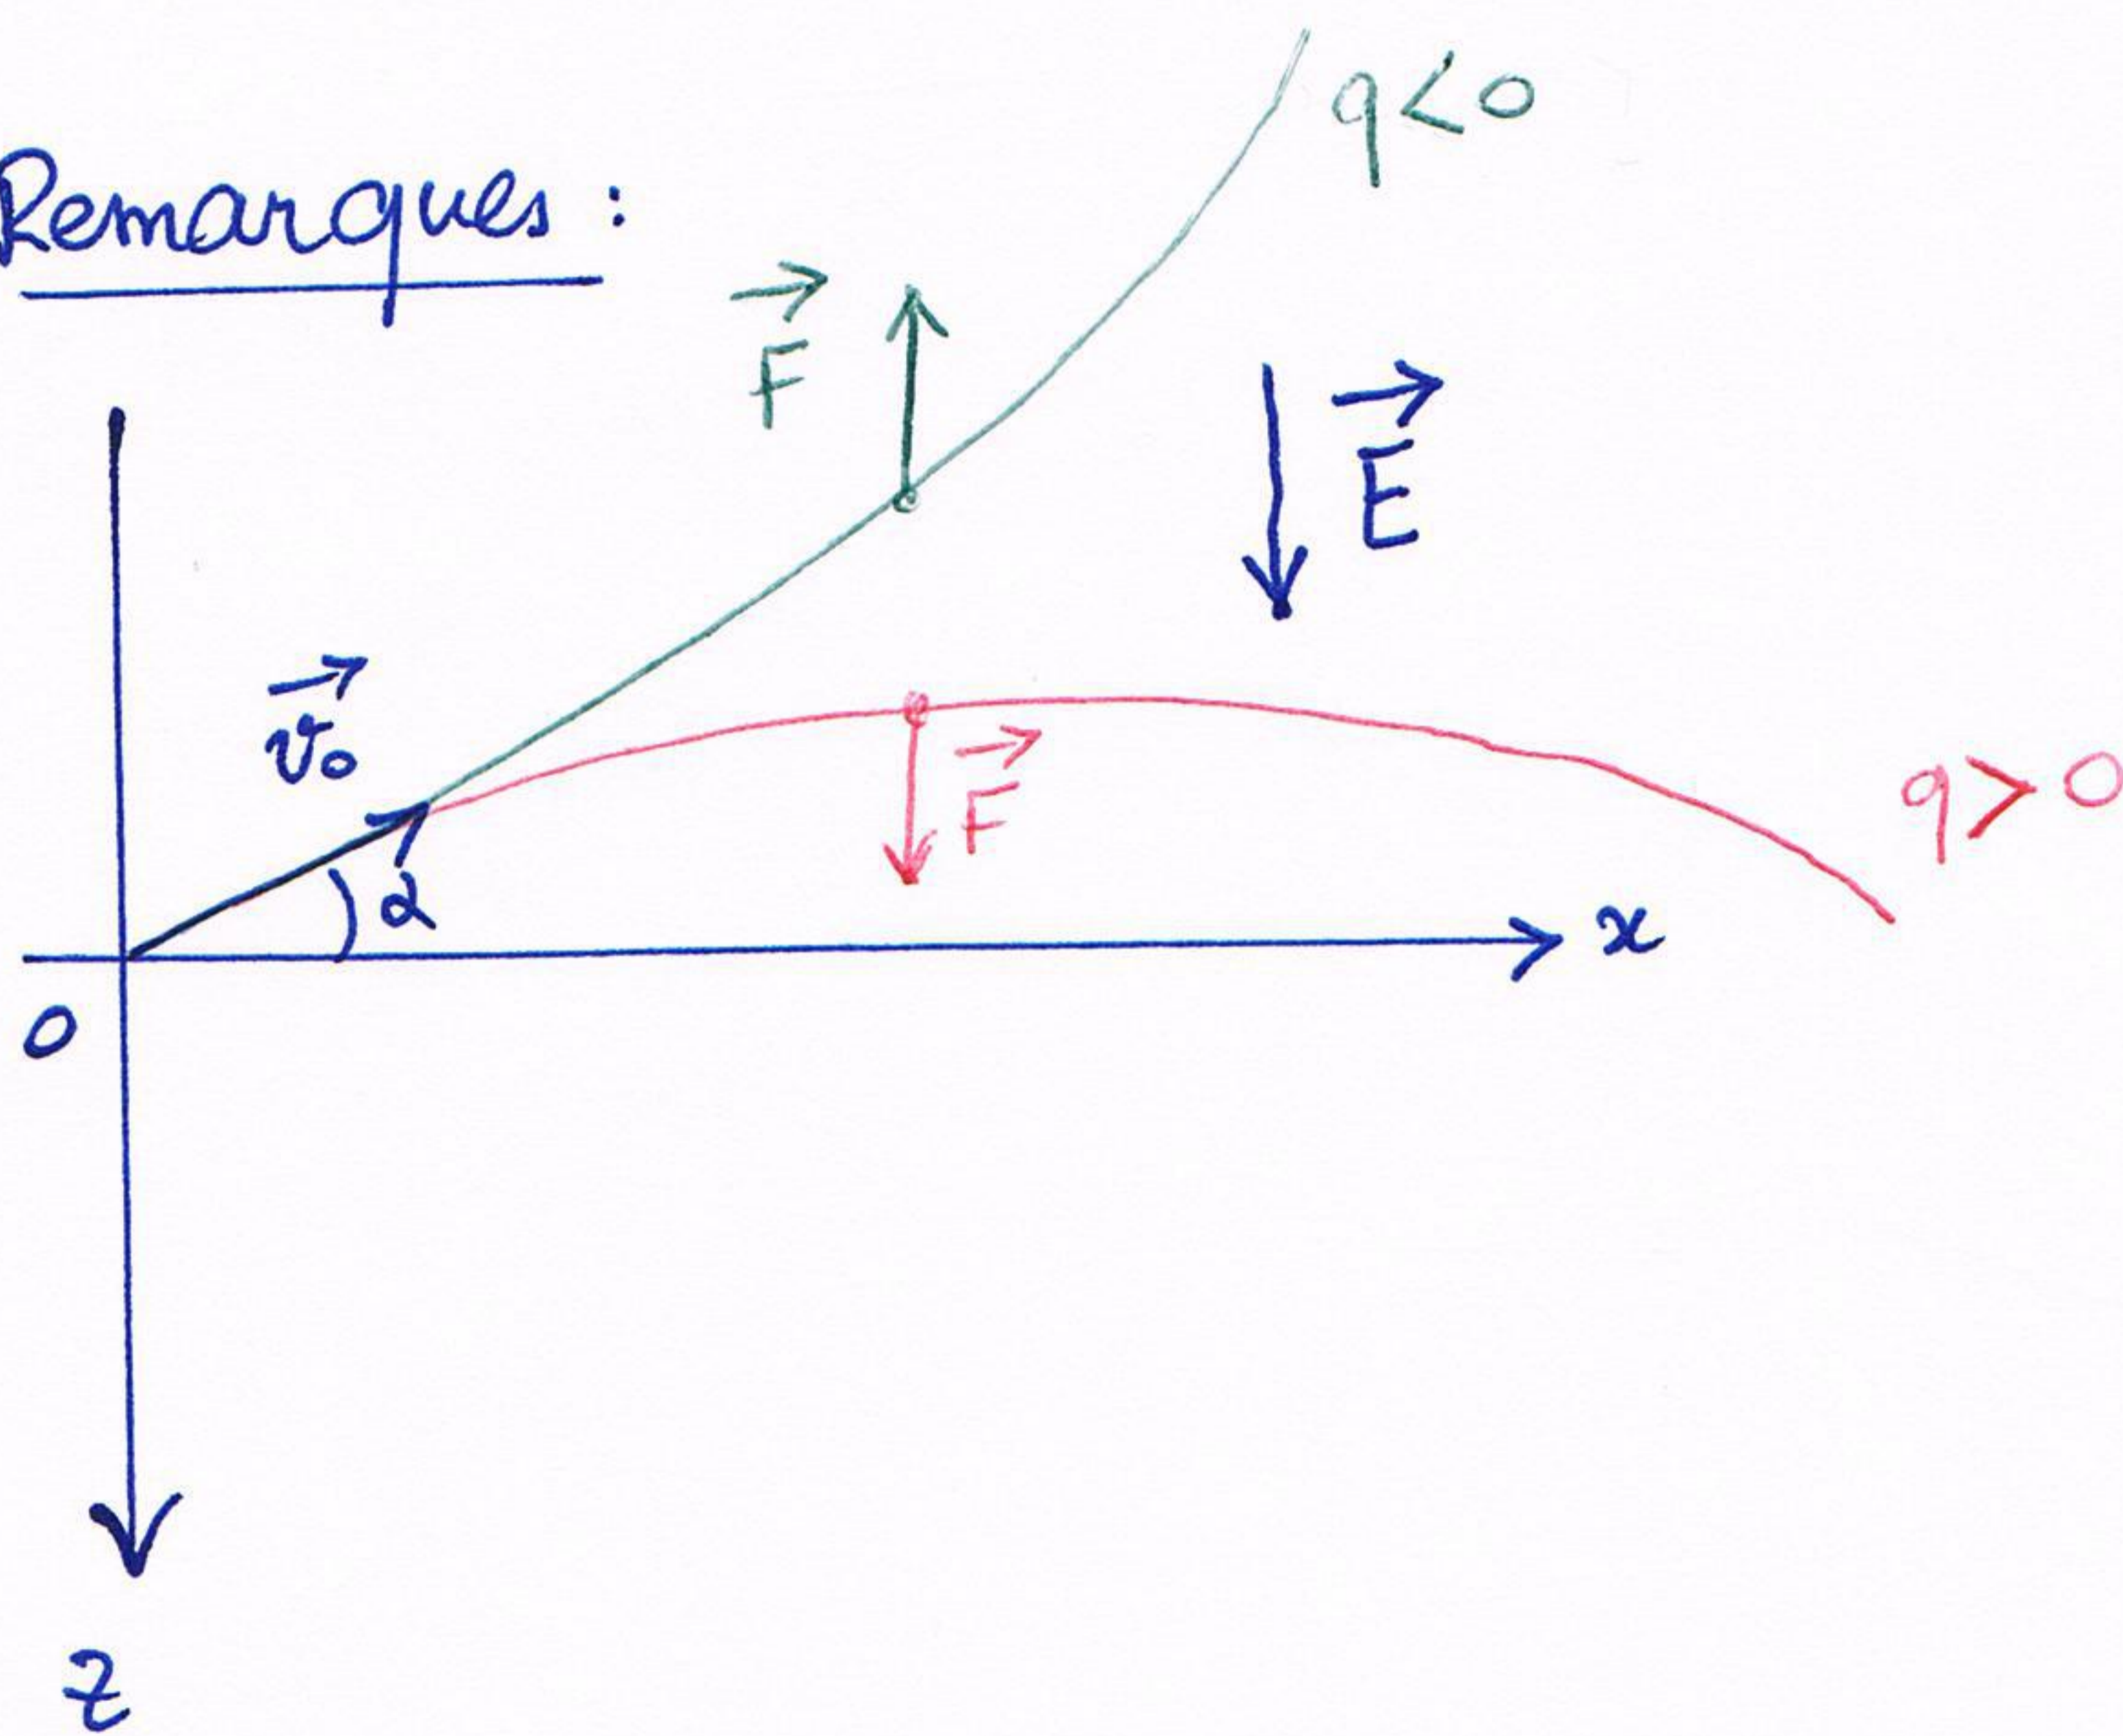 q < 0
Remarques :
F⃗
E⃗
v⃗₀
F⃗
q > 0
α
x
0
z